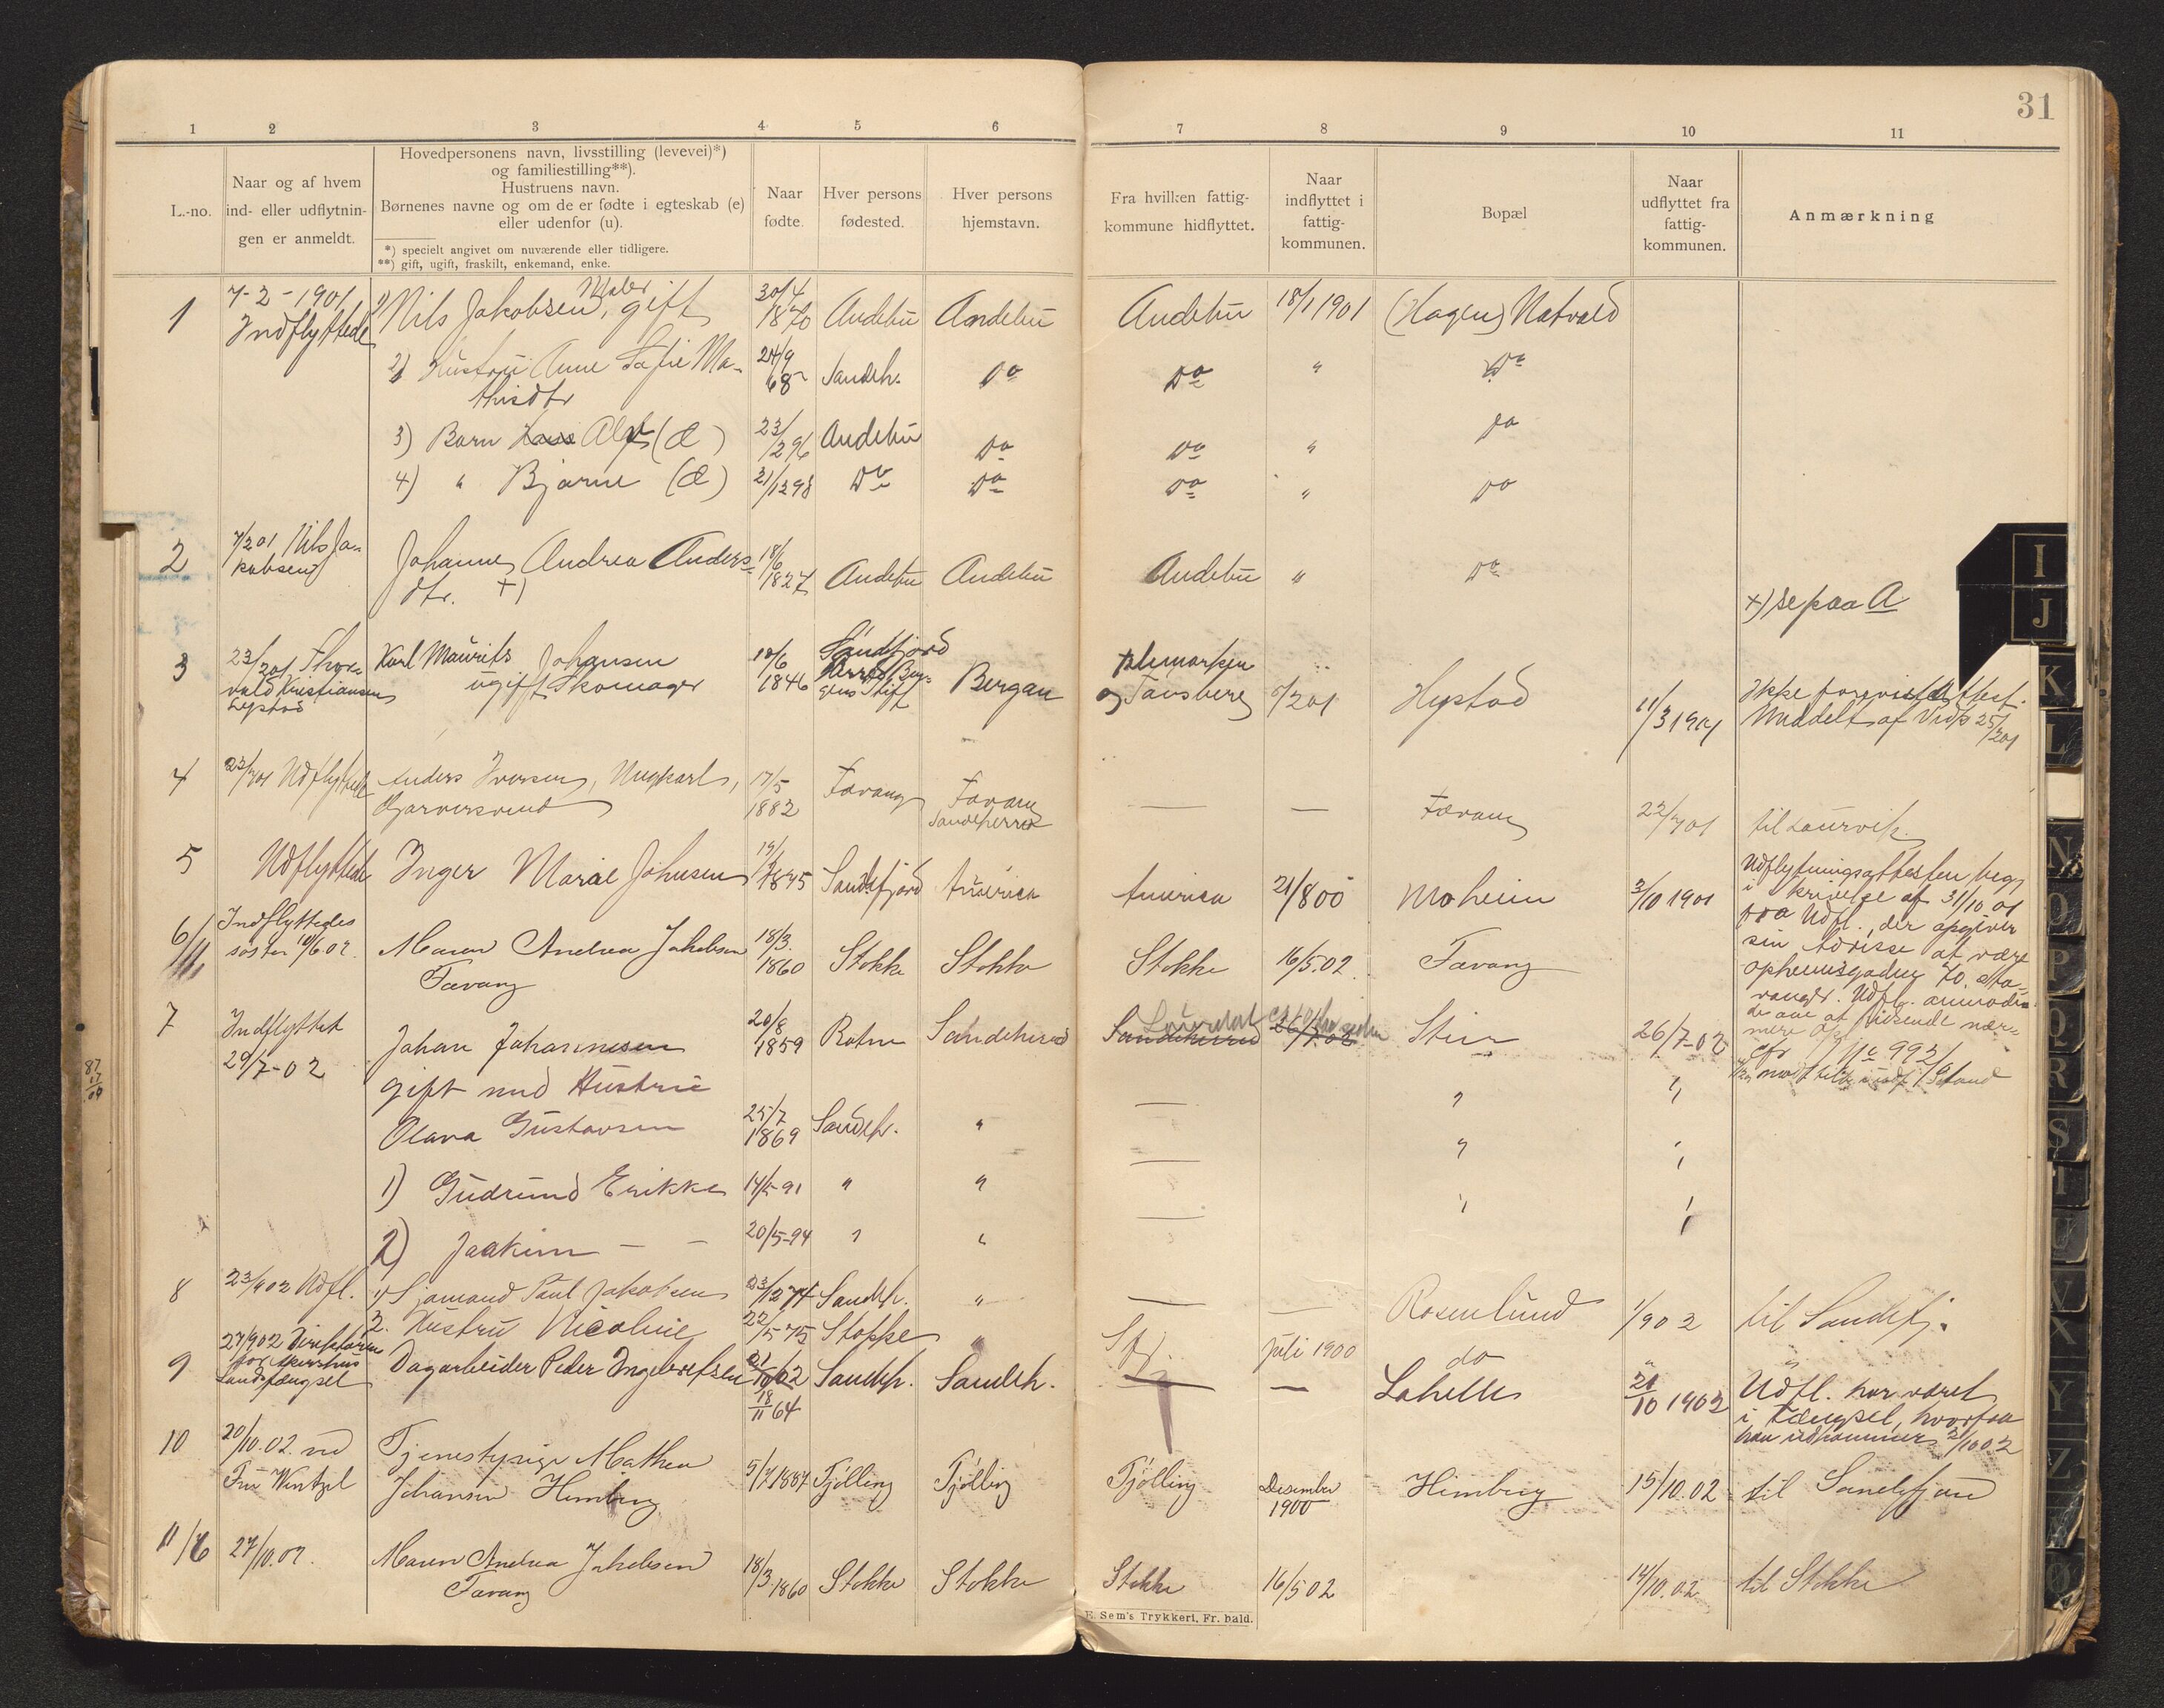 31
1 2 3 4 5 6 7 8 9 10 11
L.-no.
Naar og af hvem
ind- eller udflytnin-
gen er anmeldt.
Hovedpersonens navn, livsstilling (levevei)*)
og familiestilling**).
Hustruens navn.
Børnenes navne og om de er fødte i egteskab (e)
eller udenfor (u).
*) specielt angivet om nuværende eller tidligere.
**) gift, ugift, fraskilt, enkemand, enke.
Naar
fødte.
Hver persons
fødested.
Hver persons
hjemstavn.
Fra hvilken fattig-
kommune hidflyttet.
Naar
indflyttet i
fattig-
kommunen.
Bopæl
Naar
udflyttet fra
fattig-
kommunen.
Anmærkning
1 7-2-1901 Indflyttede 1) Nils Jakobsen, Maler gift 30/4 1870 Andebu Andebu Andebu 18/1 1901 (Hagen) Natvald
2) Hustru Anne Sofie Ma-
thisdtr 24/9 68 Sandeh. Do Do " Do
3) Barn Alf (E) 23/2 96 Andebu Do Do " Do
4) " Bjarne (E) 21/12 98 Do Do Do " Do
2 7/2 01 Nils Ja-
kobsen Johanne Andrea Anders-
dtr. +) 18/6 1827 Andebu Andebu Andebu " Do
+) se paa A
3 23/2 01 Thor-
vald Kristiansen
Hystad Karl Maurits Johansen
ugift Skomager 18/6 1846 Søndfjord
Bergens Stift Bergen
og Tønsberg 6/2 01 Hystad 11/3 1901 Ikke forevist Attest.
Meddelt af Vidf 25/2 01
4 22/7 01 Udflyttede Anders Iversen, Ungkarl,
Garversvend 17/5 1882 Favang Favang
Sandeherred — — Favang 22/7 01 til Laurvik.
5 Udflyttede Inger Marie Johnsen 1845 Sandefjord Amerika Amerika 21/8 00 Moheim 3/10 1901 Udflytningsattesten beg.
i skrivelse af 31/10 01
fra Udfl., der opgiver
sin Adresse at være
70, Sta-
vanger. Udfl. anmodes
6/11 Indflyttedes
søster 10/6 02. Maren Andrea Jakobsen
Favang 18/3. 1860 Stokke Stokke Stokke 16/5.02 Favang
7 Indflyttet
29/7-02 Johan Johannesen 20/8 1859 Botne Sandeherred Sandeherred 26/7-02 Stein 26/7-02
gift med Hustru
Olava Gustavsen 25/7 1869 Sandeh. "
1) Gudrund Erikke 14/5-91 " "
2) Joakim — — 20/5-94 " "
8 23/9 02 Udfl. 1) Sjømand Paul Jakobsen 23/12 74 Sandeh. " — — Rosenlund 1/9 02 til Sandefj.
2. Hustru Nicoline 22/5 75 Stokke " Juli 1900 do " "
9 27/9 02 Direktøren
for Akershus
Landsfængsel Dagarbeider Peder Ingebretsen 18/11 64 Sandeh. Sandeh. — — Lahelle 21/10 1902 Udfl. har været
i Fængsel, hvorfra
han udkommer 21/10 02
10 20/10.02. ved
Fru Wentzel Tjenestepige Mathea
Johansen Himberg 5/7 1887 Tjølling Tjølling Tjølling Desember
1900 Himberg 15/10.02 til Sandefjord
11/6 27/10.02. Maren Andrea Jakobsen
Favang 18/3.1860 Stokke Stokke Stokke 16/5 02 14/10.02 til Stokke
E. Sem's Trykkeri, Fr. hald.
I
J
K
L
N
O
P
Q
R
S
T
U
V
X
Y
Z
Ø